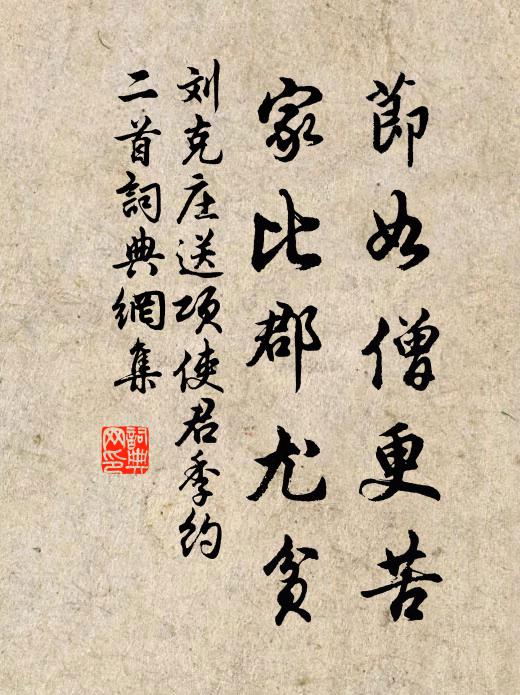 節如僧更苦
家比郡尤貧
刘克庄送项使君季約
二首詞典網集
詞典网印